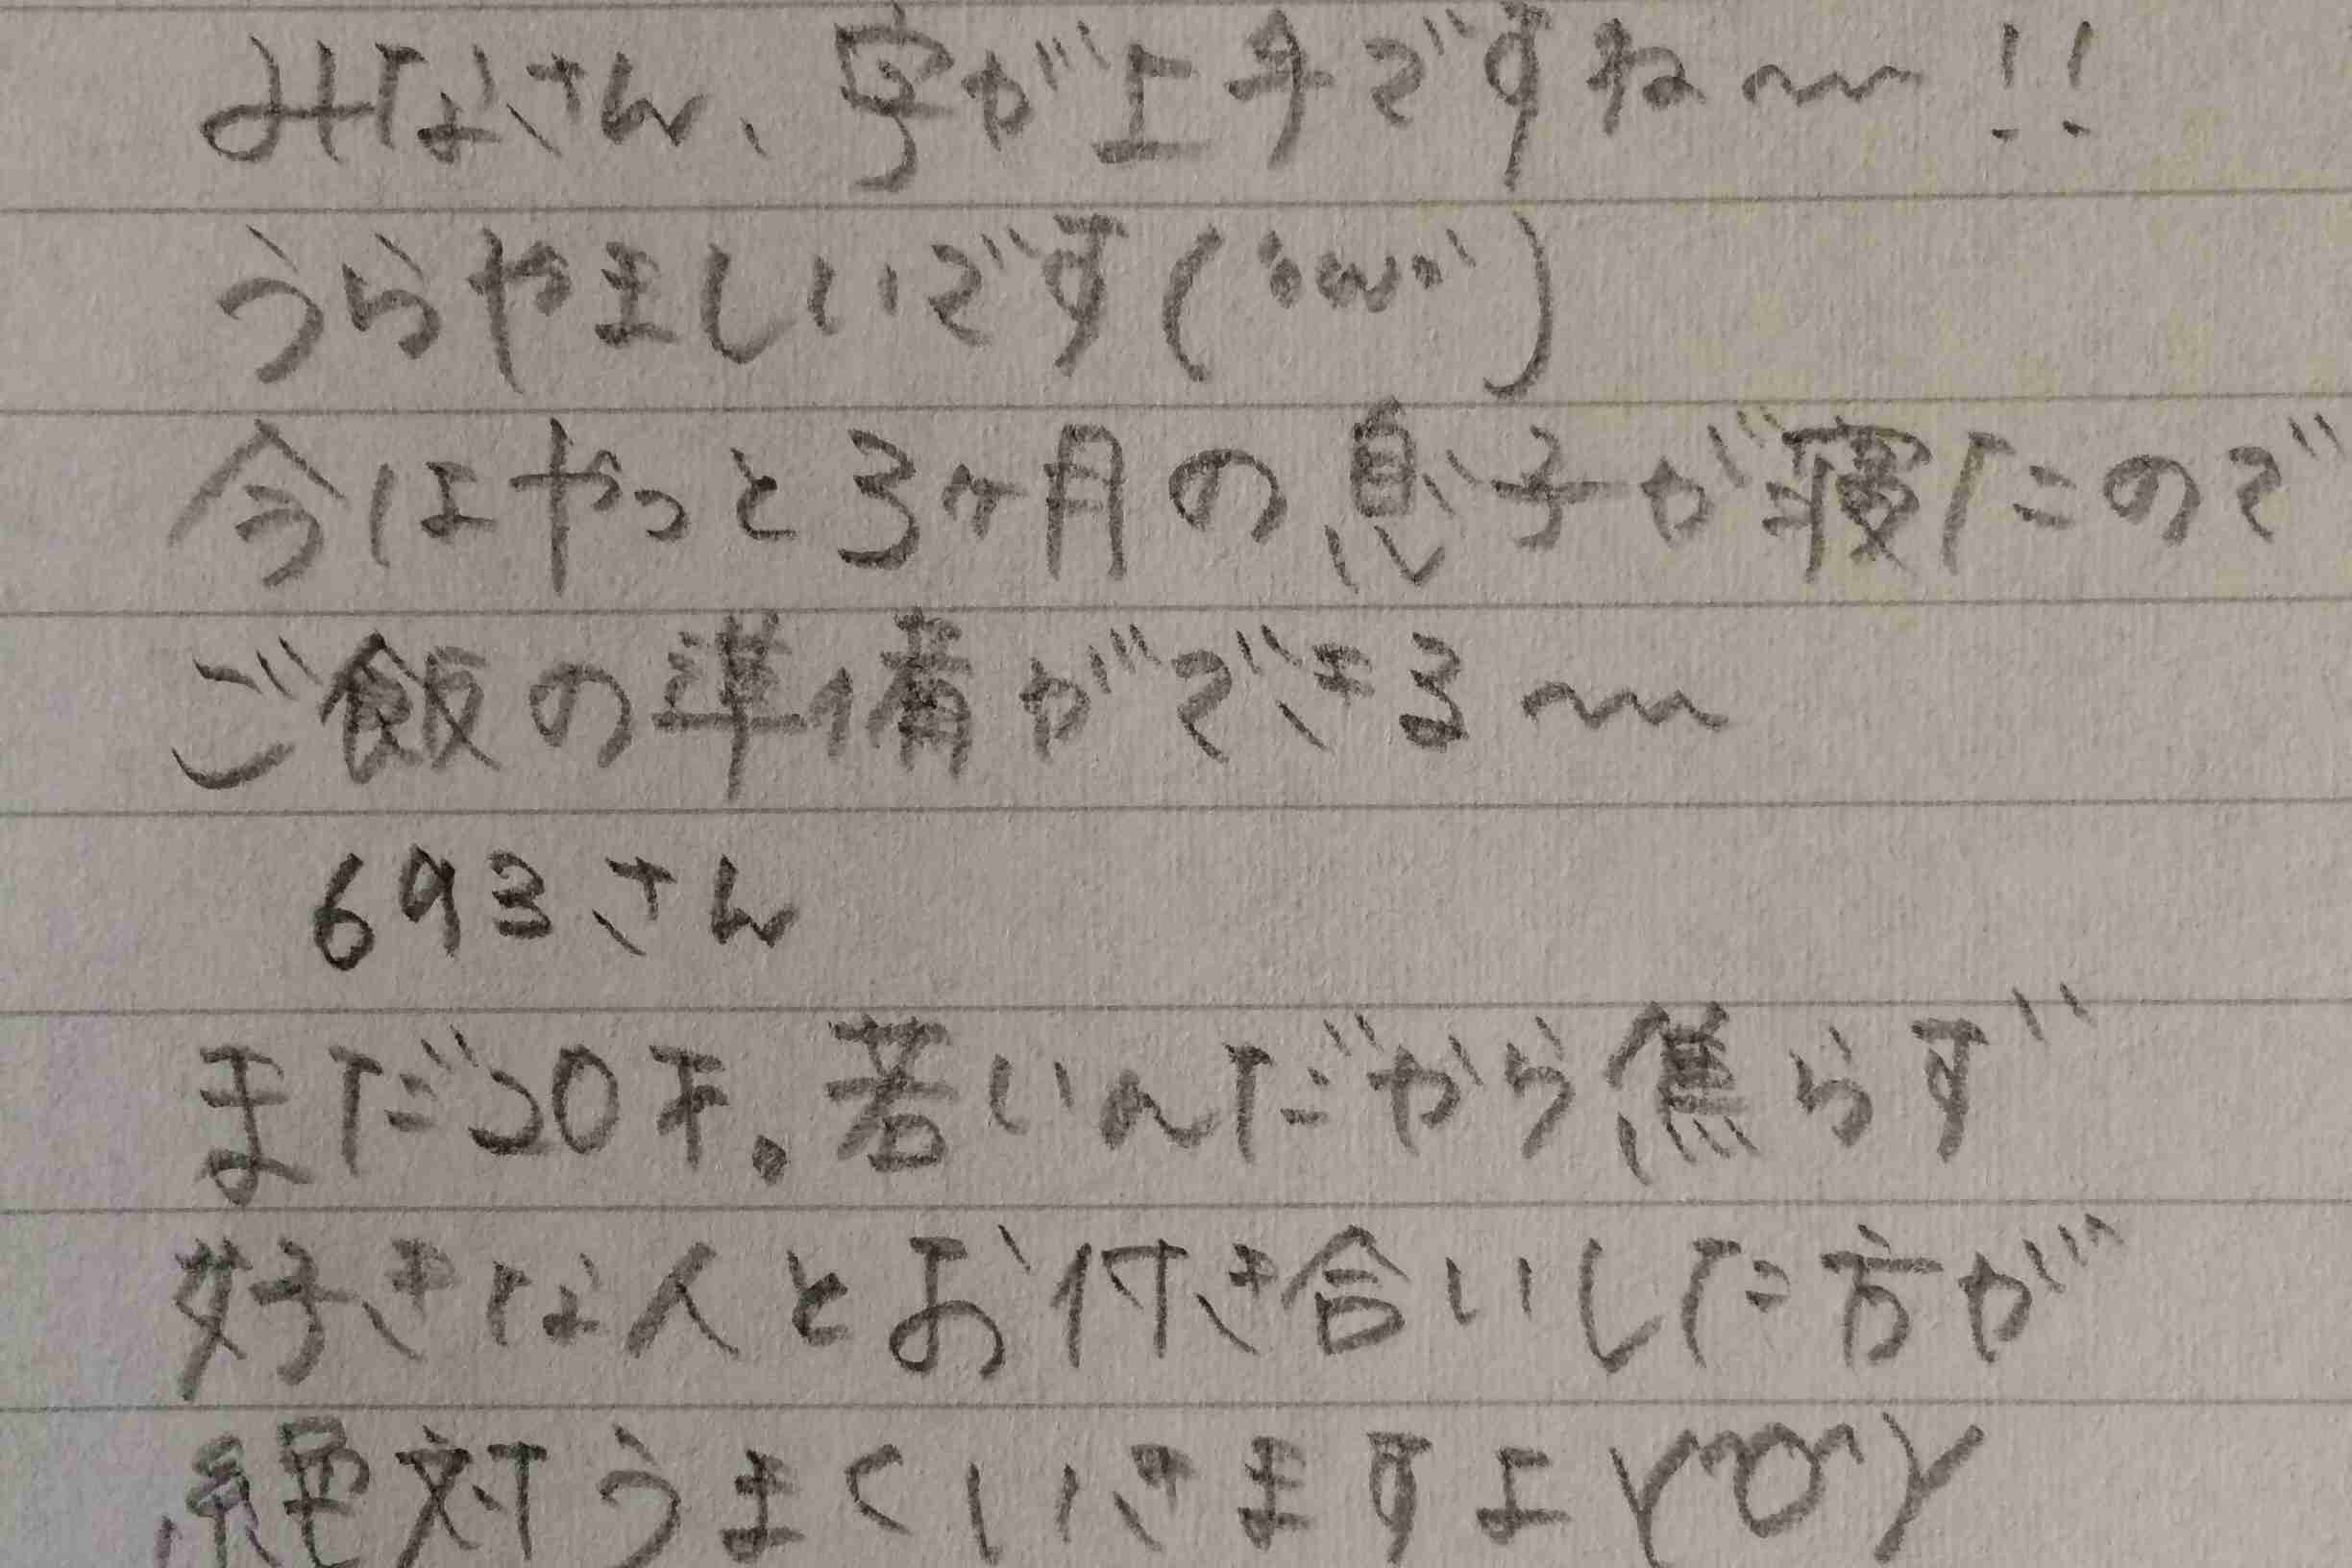 みなさん、字が上手ですね〜!!
うらやましいです(´ω`)
今はやっと3ヶ月の息子が寝たので
ご飯の準備ができる〜
693さん
まだ20才。若いんだから焦らず
好きな人とお付き合いした方が
絶対うまくいきますよ(^o^)